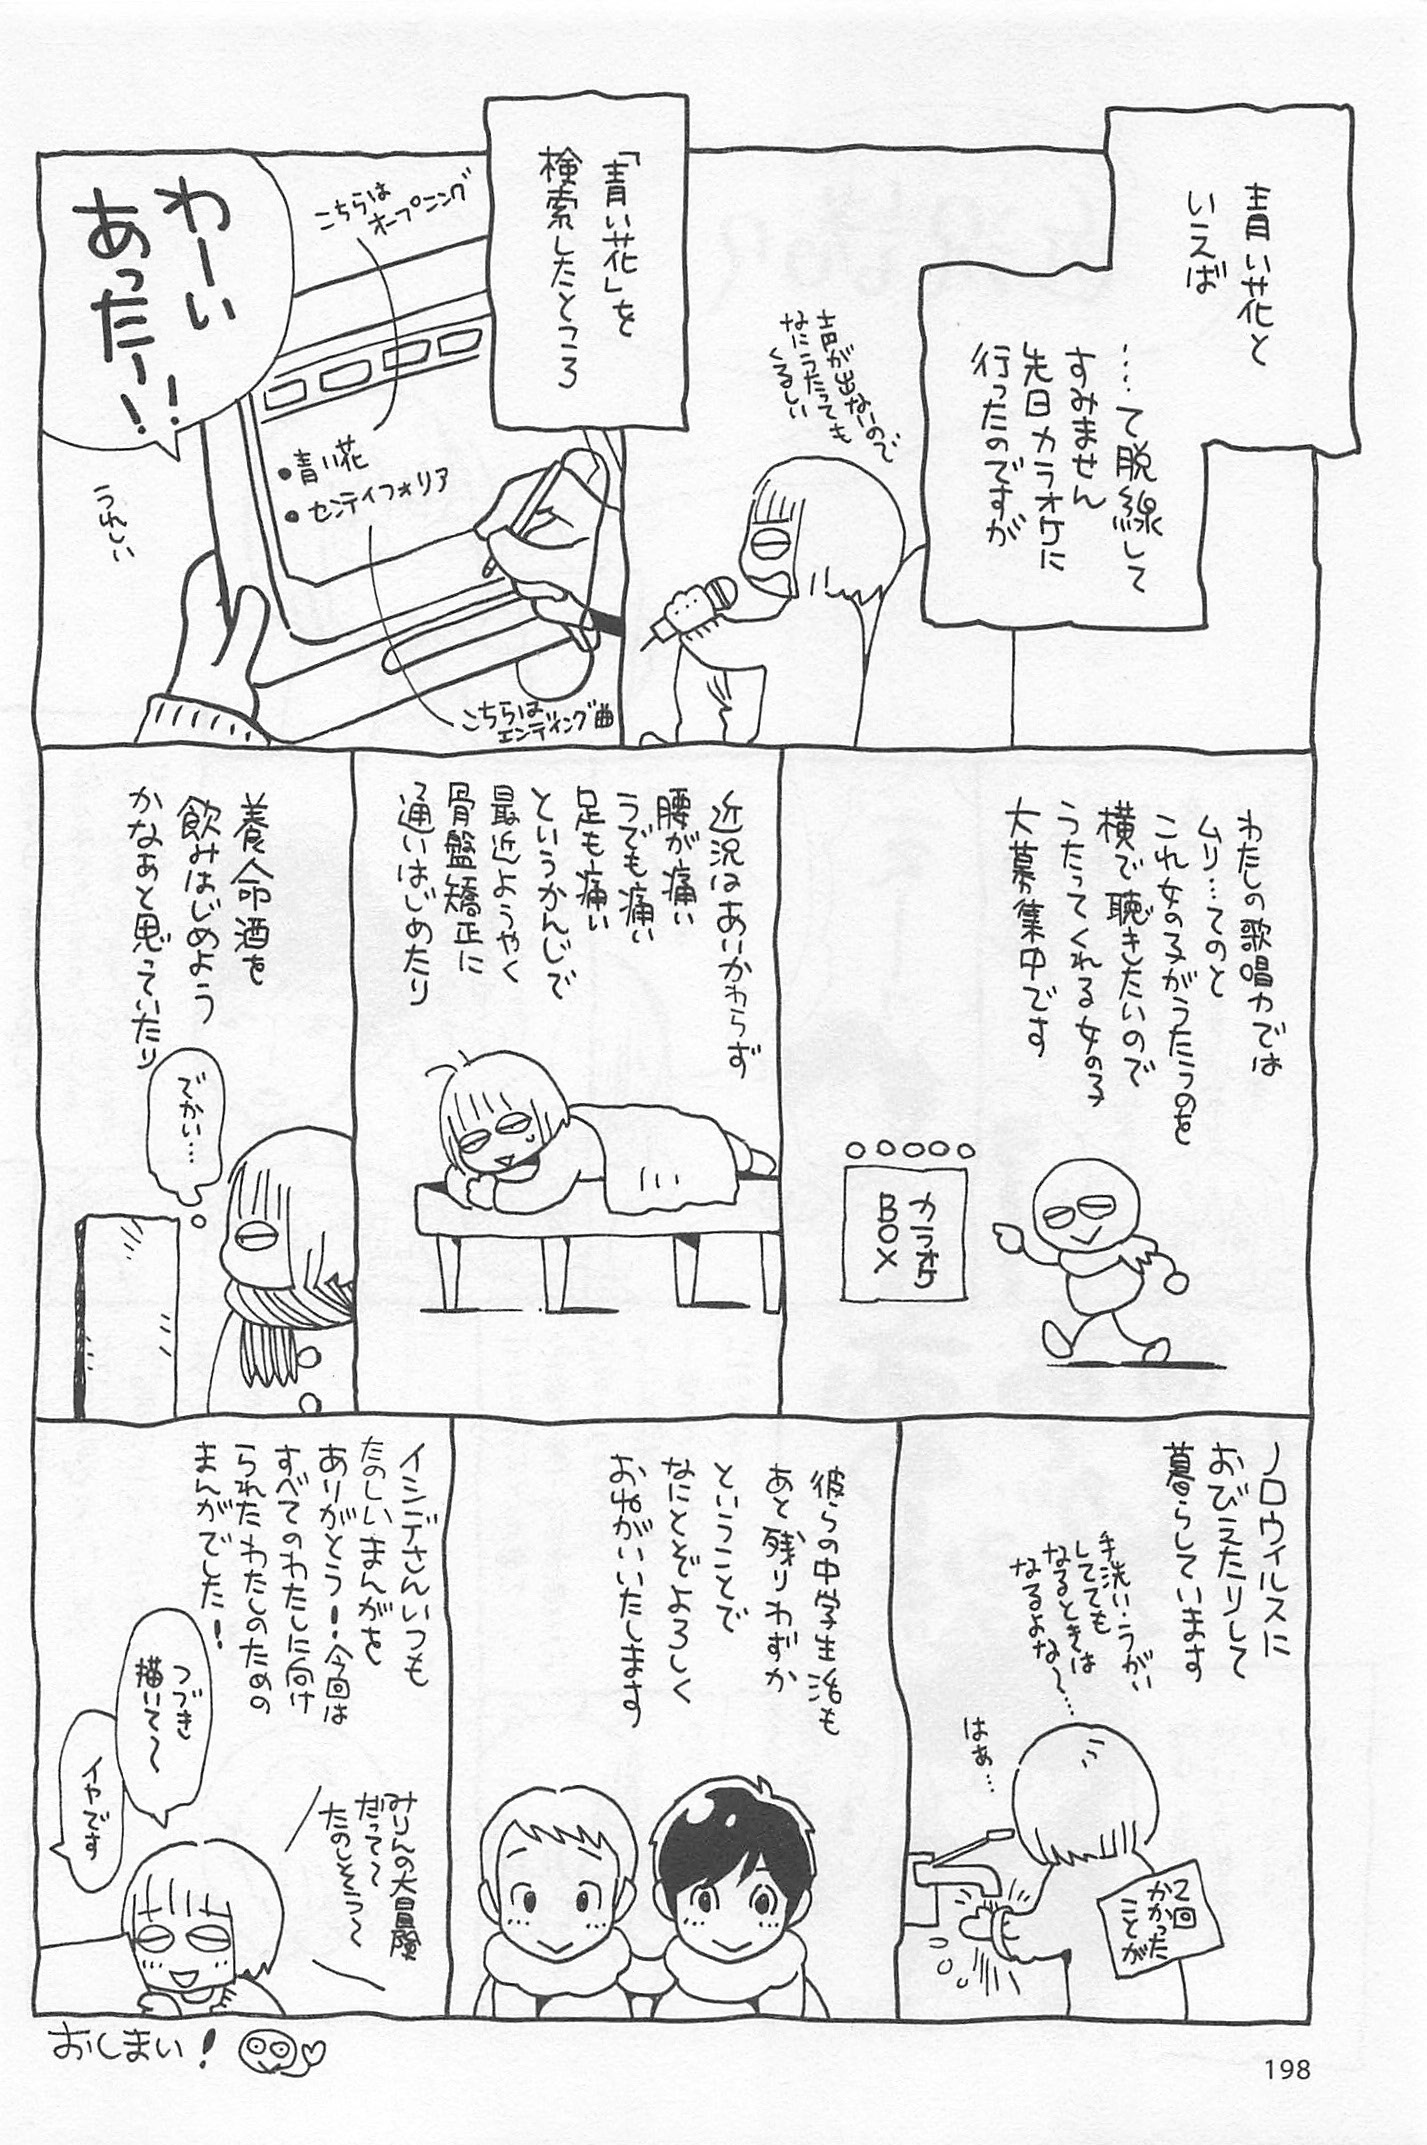 青い花と
いえば
‥‥て脱線して
すみません
先日カラオケに
行ったのですが
声が出ないので
なにうたっても
くるしい
「青い花」を
検索したところ
こちらは
オープニング
・青い花
・センティフォリア
こちらは
エンディング曲
わーい
あったー!!
うれしい
わたしの歌唱力では
ムリ…てのと
これ女の子がうたうのを
横で聴きたいので
うたってくれる女の子
大募集中です
カラオケ
BOX
近況はあいかわらず
腰が痛い
うでも痛い
足も痛い
というかんじで
最近ようやく
骨盤矯正に
通いはじめたり
養命酒を
飲みはじめよう
かなぁと思っていたり
でかい…
ノロウイルスに
おびえたりして
暮らしています
手洗い・うがい
してても
なるときは
なるよな〜…
はぁ…
2回
かかった
ことが
彼らの中学生活も
あと残りわずか
ということで
なにとぞよろしく
おねがいいたします
イシデさんいつも
たのしいまんがを
ありがとう!今回は
すべてのわたしに向け
られたわたしのための
まんがでした!
つづき
描いて〜
イヤです
みりんの大冒険
だって〜
たのしそう〜
おしまい!
198